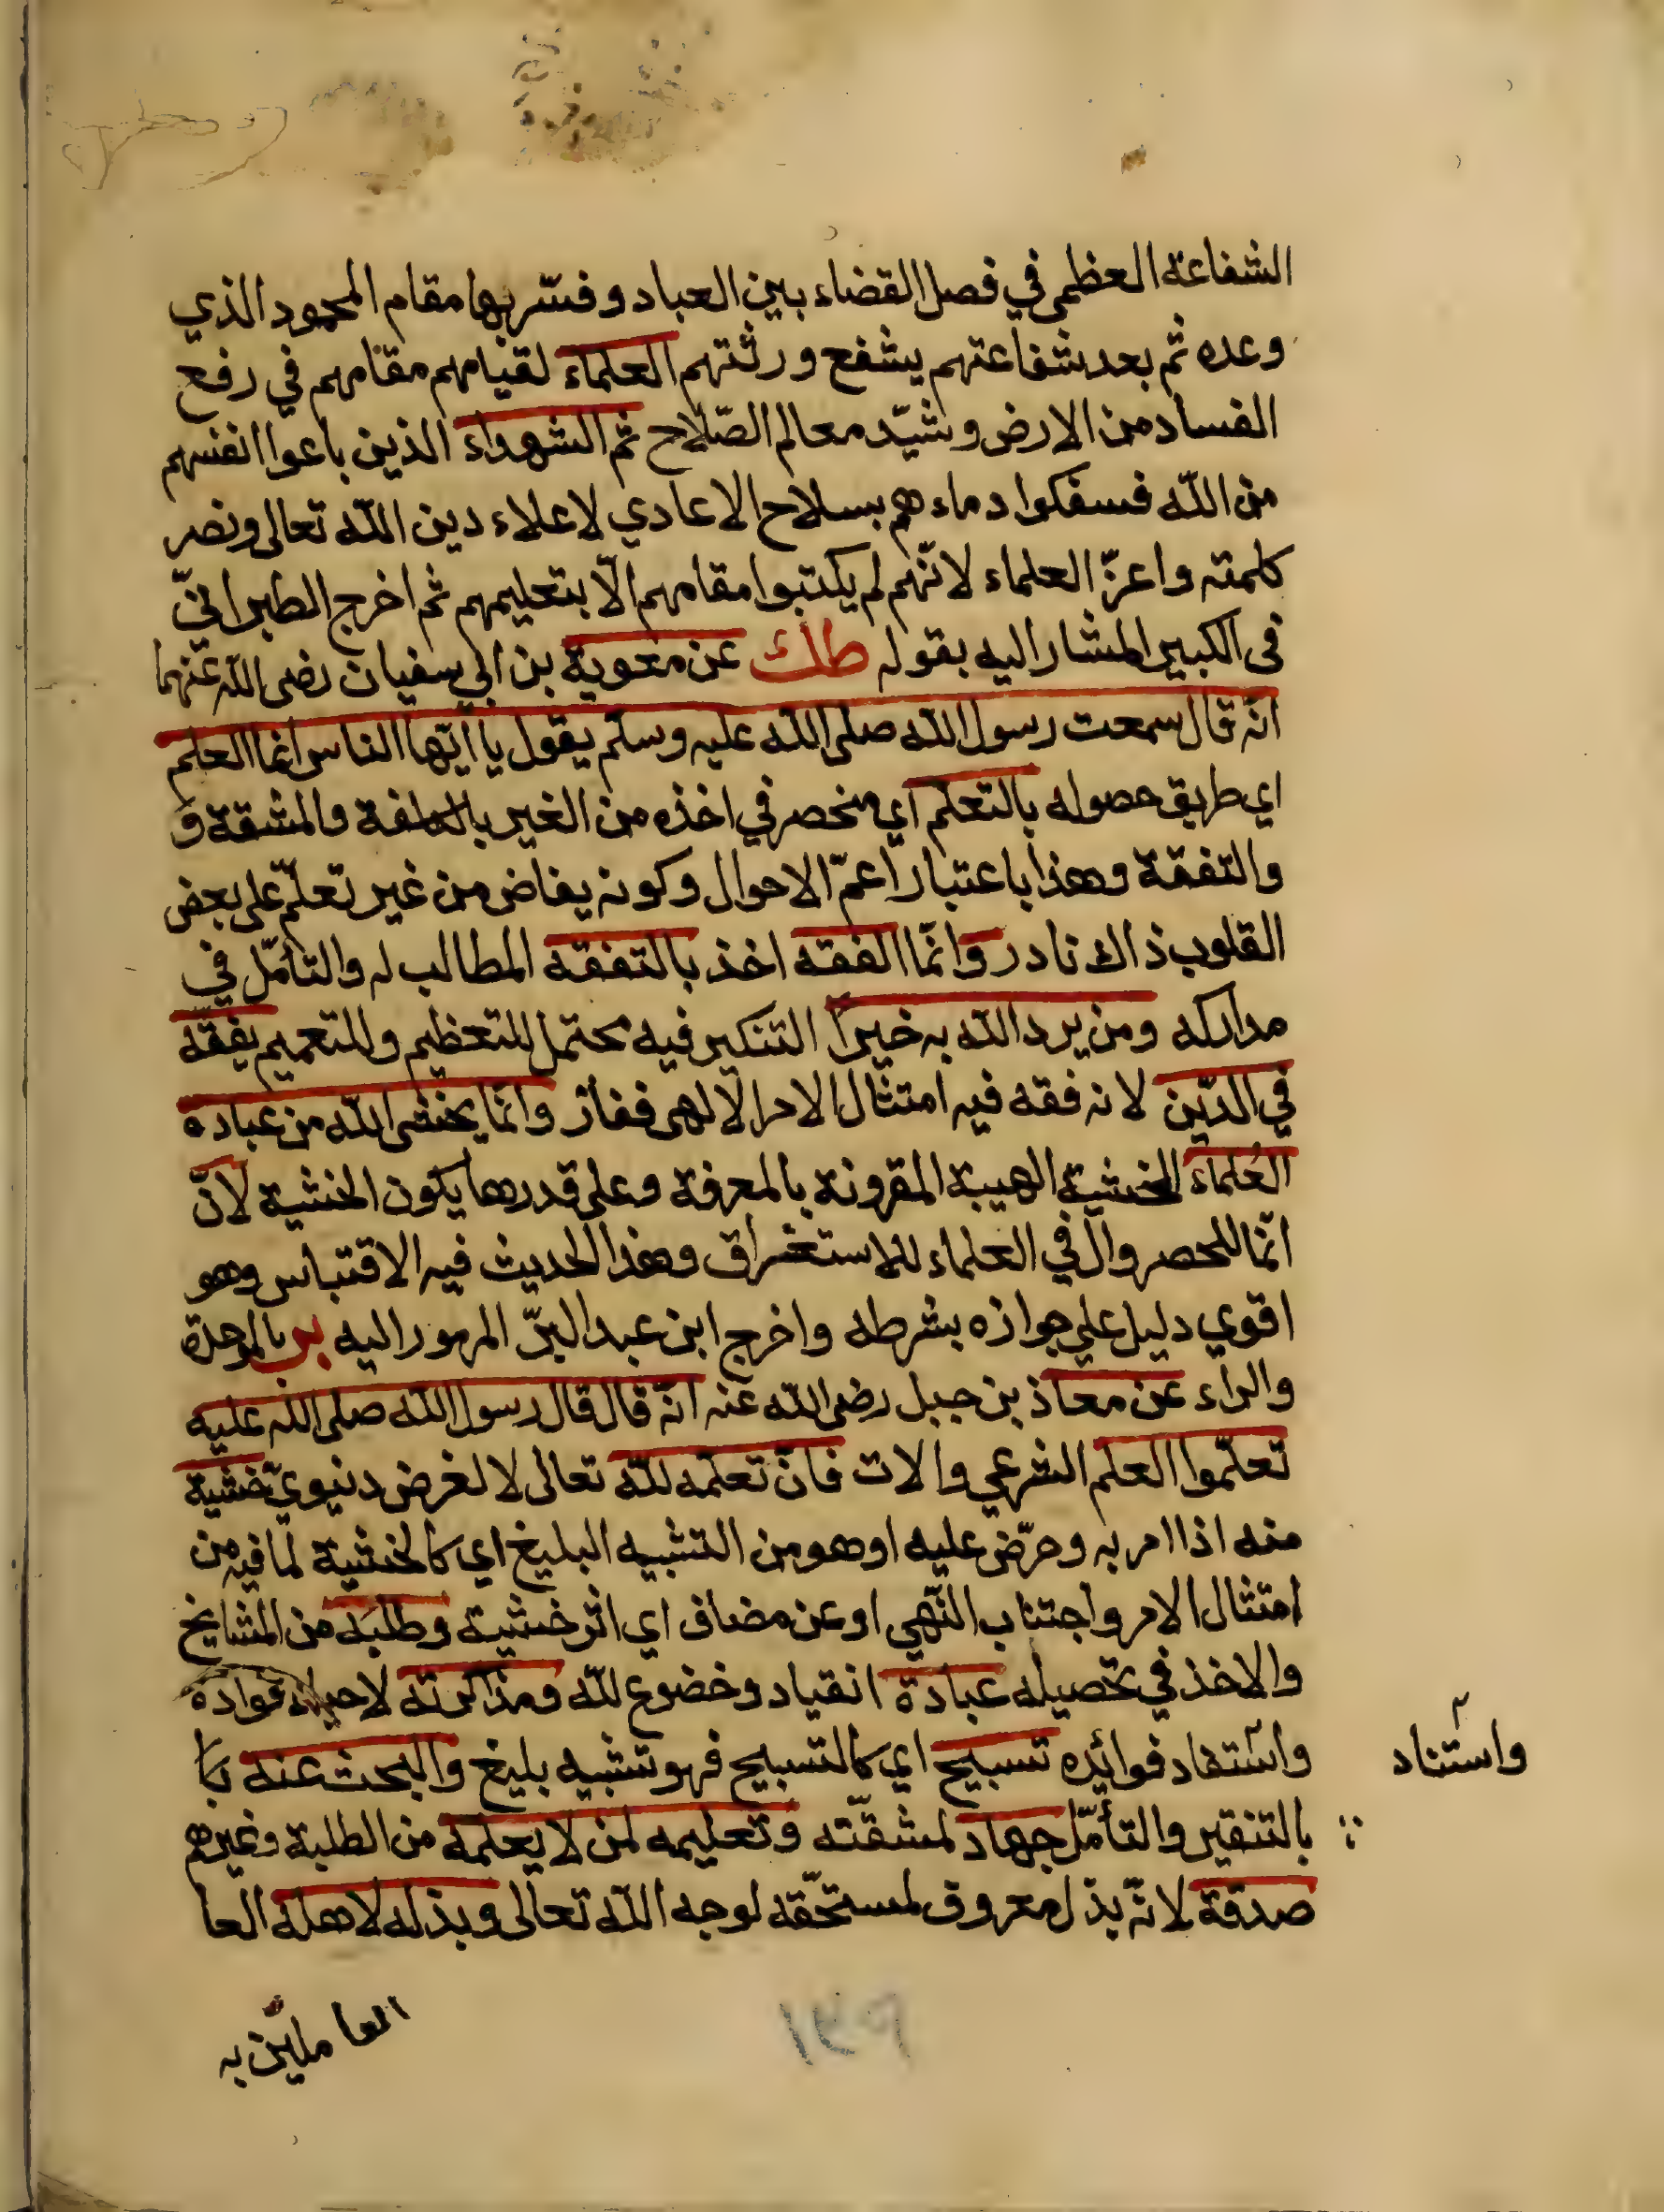 الشفاعة العظمى في فصل القضاء بين العباد وفسّر بها مقام المحمود الذي
وعده ثم بعد شفاعتهم يشفع ورثتهم العلماء لقيامهم مقامهم في رفع
الفساد من الارض وشيّد معالم الصّلاح ثم الشهداء الذين باعوا انفسهم
من اللّه فسفكوا دماء هم بسلاح الاعادي لاعلاء دين اللّه تعالى ونصر
كلمته واعزّ العلماء لانّهم لم يكتبوا مقامهم الّا بتعليمهم ثم اخرج الطبرانيّ
فى الكبير المشار اليه بقوله طك عن معوية بن ابي سفيان رضى اللّه عنهما
انّه قال سمعت رسول اللّه صلى اللّه عليه وسلم يقول يا ايّها الناس انما العلم
اي طريق حصوله بالتعلم اي منحصر في اخذه من الغير بالكلفة والمشقة و
والتفقة وهذا باعتبار اعمّ الاحوال وكونه يفاض من غير تعلّم على بعض
القلوب ذاك نادر وانّما الفقه اخذ بالتفقه المطالب له والتأمّل في
مداركه ومن يرد اللّه به خيرًا التنكير فيه محتمل للتعظيم وللتعميم يفقّه
في الدّين لانه فقه فيه امتثال الامر الالهى ففاز وانّما يخشى اللّه من عباده
العُلماء الخشية الهيبة المقرونة بالمعرفة وعلى قدرها يكون الخشية لانّ
انّما للحصر وال في العلماء للاستغراق وهذا الحديث فيه الاقتباس وهو
اقوي دليل علي جوازه بشرطه واخرج ابن عبد البرّ المرموز اليه بر بالموحدة
والراء عن معاذ بن جبل رضى اللّه عنه انّه قال قال رسول اللّه صلى اللّه عليه
تعلّموا العلم الشرعي والات فانّ تعلّمه للّه تعالى لا لغرض دنيويّ خشية
منه اذا امر به وحرّض عليه او هو من التشبيه البليغ اي كالخشية لما فيه من
امتثال الامر واجتناب النّهي او عن مضاف اي اثر خشية وطلبَه من المشايخ
والاخذ في تحصيله عبادة انقياد وخضوع للّه ومذاكرته لاحياء فواده
واستفاد فوائده تسبيح اي كالتسبيح فهو تشبيه بليغ والبحث عنه با
واستناد
بالتنقير والتأمّل جهاد لمشقّته وتعليمه لمن لا يعلمه من الطلبة وغيرهم
صدقة لانّه بذل معروف لمستحّقه لوجه اللّه تعالى وبذله لاهله العا
العاملين به